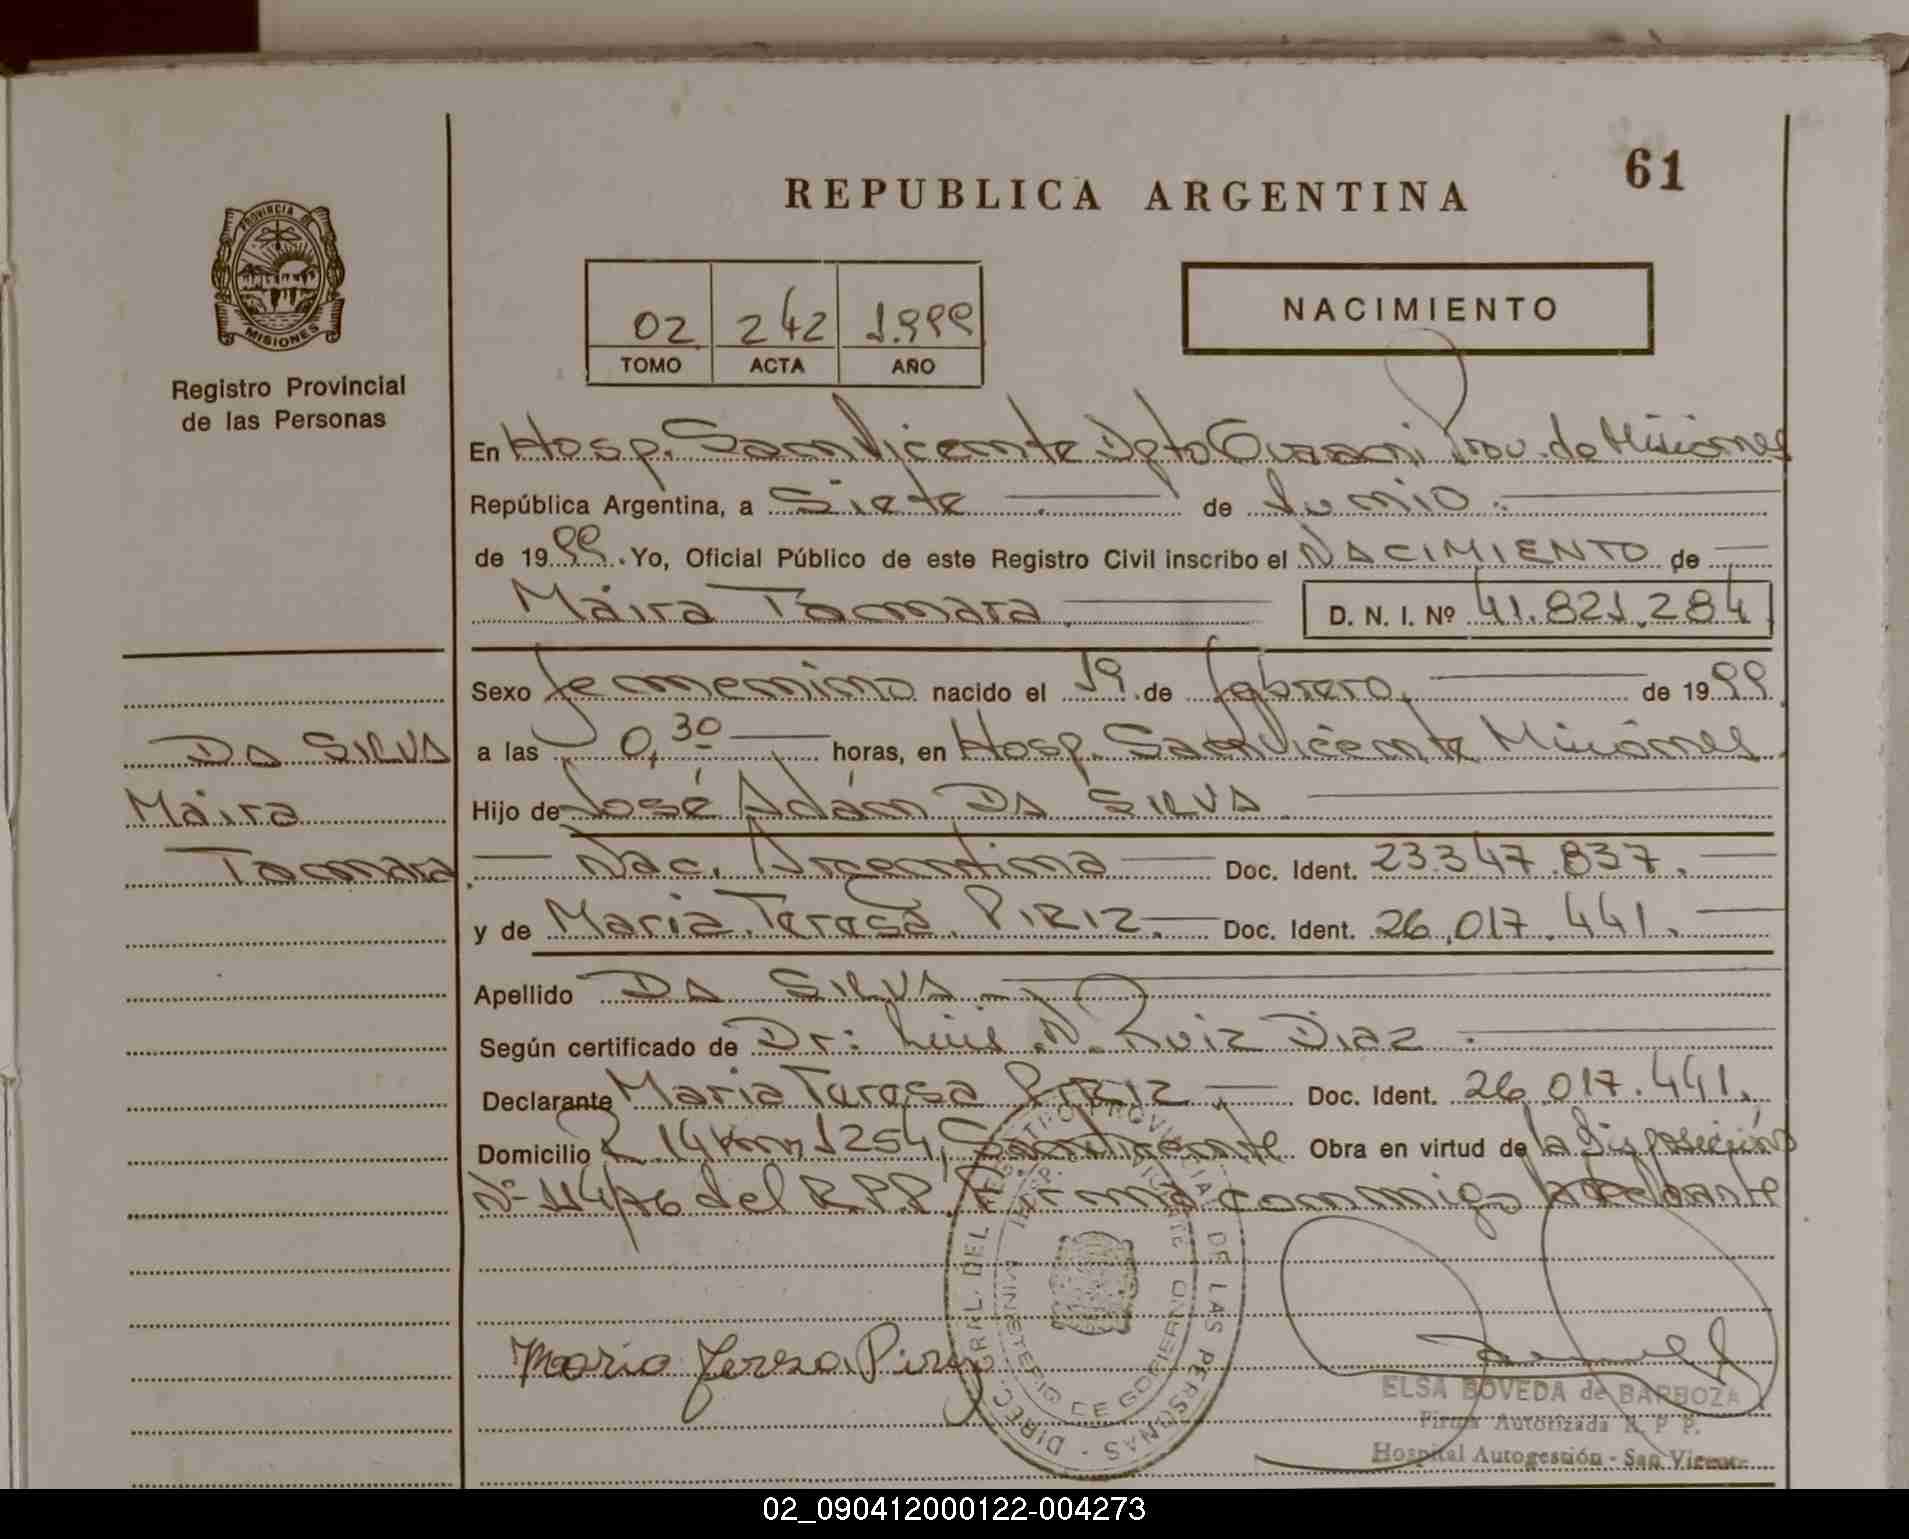 61
REPUBLICA ARGENTINA
PROVINCIA DE
MISIONES
Registro Provincial
de las Personas
02 242 1.999
TOMO ACTA AÑO
NACIMIENTO
En Hosp. San Vicente Dpto Guarani Prov. de Misiones
República Argentina, a Siete de Junio.
de 1999. Yo, Oficial Público de este Registro Civil inscribo el NACIMIENTO de
Máira Tamara. D. N. I. Nº 41.821.284
Sexo femenino nacido el 19 de febrero, de 1999
a las 0,30 horas, en Hosp. San Vicente Misiones.
Hijo de José Adán DA SILVA
Nac. Argentina Doc. Ident. 23.347.837.
y de Maria Teresa PIRIZ. Doc. Ident. 26.017.441.
Apellido DA SILVA
Según certificado de Dr: Luis N. Ruiz Diaz
Declarante Maria Teresa PIRIZ Doc. Ident. 26.017.441.
Domicilio R. 14 Km 1254, San Vicente Obra en virtud de la Disposición
Nº 114/76 del R.P.P. Firma conmigo
DA SILVA
Máira
Tamara
Maria Tereza Piriz
DIREC. GRAL. DEL REGISTRO PROVINCIAL DE LAS PERSONAS
MINISTERIO DE GOBIERNO
ELSA BOVEDA de BARBOZA
Firma Autorizada R. P. P.
Hospital Autogestión - San Vicente
02_090412000122-004273